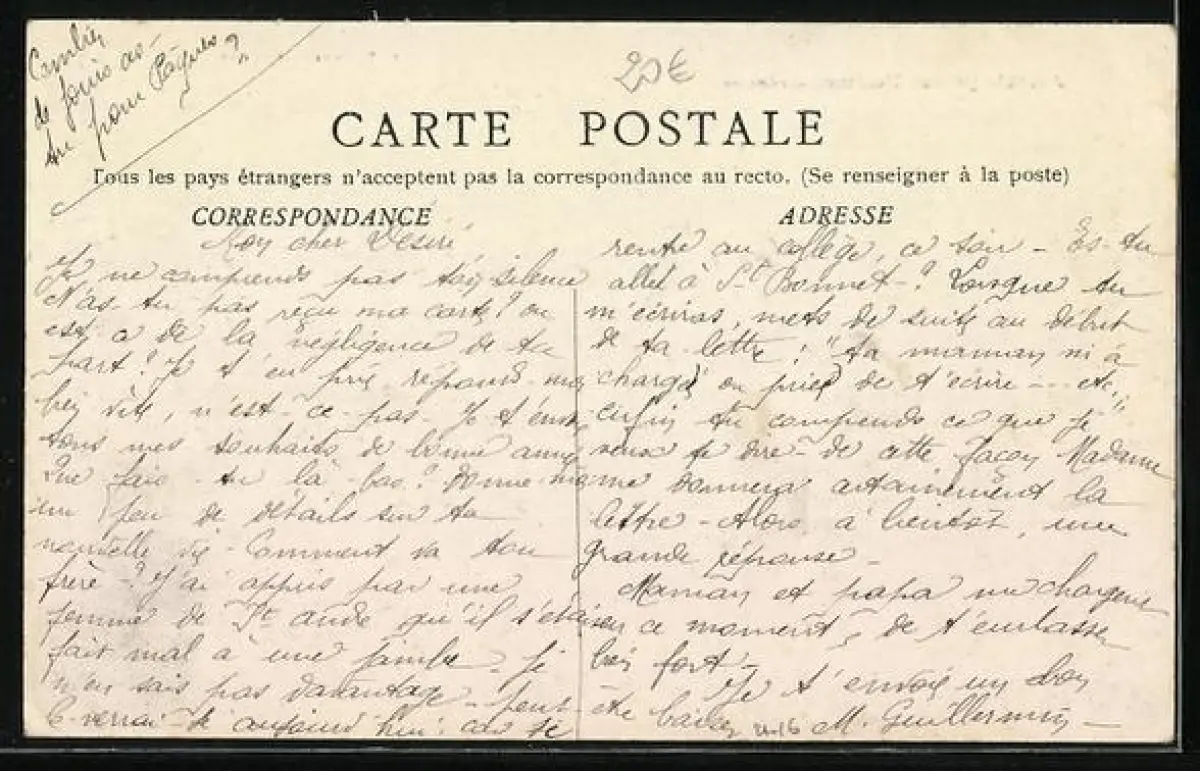 Combien
de jours as-
tu pour Pâques?
20€
CARTE POSTALE
Tous les pays étrangers n'acceptent pas la correspondance au recto. (Se renseigner à la poste)
CORRESPONDANCE
Mon cher Désiré
Je ne comprends pas ton silence
N'as-tu pas reçu ma carte? ou
est-ce de la négligence de ta
part? Je t'en prie réponds-moi
bien vite, n'est-ce-pas. Je t'envoie
tous mes souhaits de bonne année
Que fais-tu là-bas? Donne-moi
un peu de détails sur ta
nouvelle vie - Comment va ton
frère-? J'ai appris par une
femme de St
qu'il s'était
fait mal à une jambe - je
n'en sais pas davantage - peut-être
verrai-je aujourd'hui: car je
ADRESSE
rentre au collège, ce soir - Es-tu
allé à St Bonnet-? Lorsque tu
m'écriras, mets de suite au début
de ta lettre: "ta maman m'a
chargé ou prié de t'écrire --- etc,
enfin tu comprends ce que je
veux te dire - de cette façon Madame
me donnera certainement la
lettre - Alors à bientôt, une
grande réponse -
Maman et papa me chargent
en ce moment, de t'embrasser
bien fort -
Je t'envoie un bon
baiser M. Guillermin -